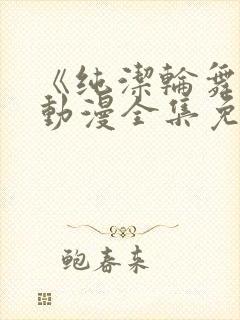 《纯潔輪舞
動漫全集免
鲍春来